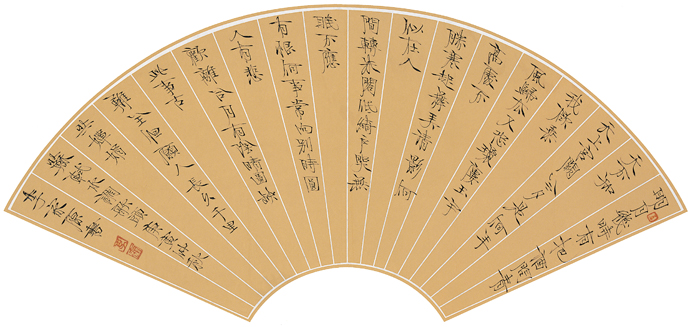 明月幾時有把酒問青
天不知
天上宮闕今夕是何年
我欲乘
風歸去又恐瓊樓玉宇
高處不
勝寒起舞弄清影何
似在人
間轉朱閣低綺戶照無
眠不應
有恨何事常向別時圓
人有悲
歡離合月有陰晴圓缺
此事古
難全但願人長久千里
共嬋娟
蘇軾水調歌頭
書